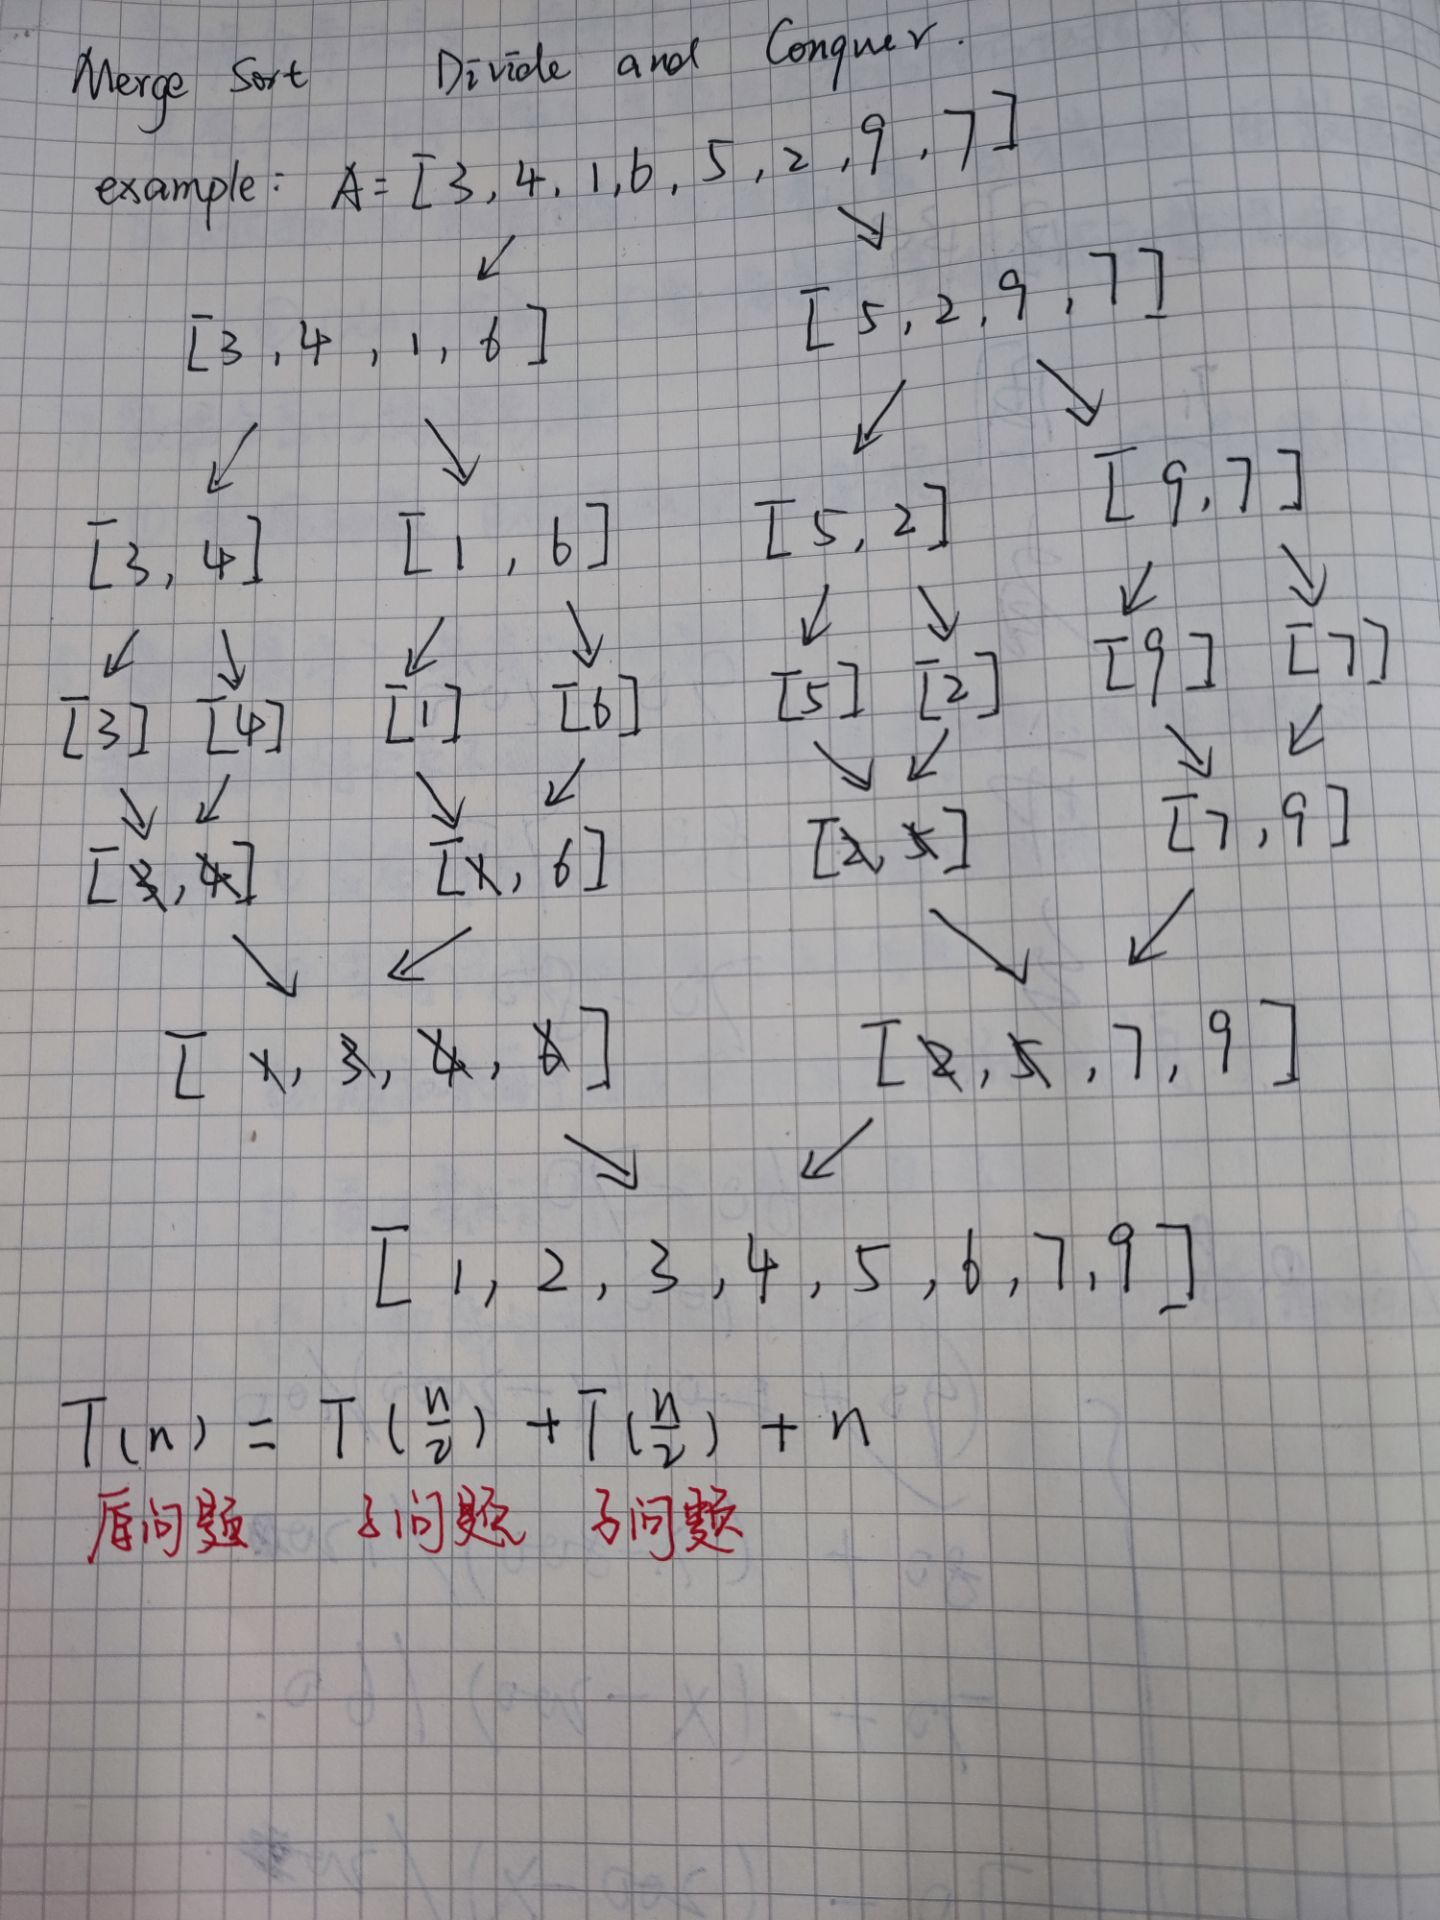 Merge Sort Divide and Conquer.
example: A = [3, 4, 1, 6, 5, 2, 9, 7]
[3, 4, 1, 6] [5, 2, 9, 7]
[3, 4] [1, 6] [5, 2] [9, 7]
[3] [4] [1] [6] [5] [2] [9] [7]
[3, 4] [1, 6] [2, 5] [7, 9]
[1, 3, 4, 6] [2, 5, 7, 9]
[1, 2, 3, 4, 5, 6, 7, 9]
T(n) = T(n/2) + T(n/2) + n
原问题 子问题 子问题